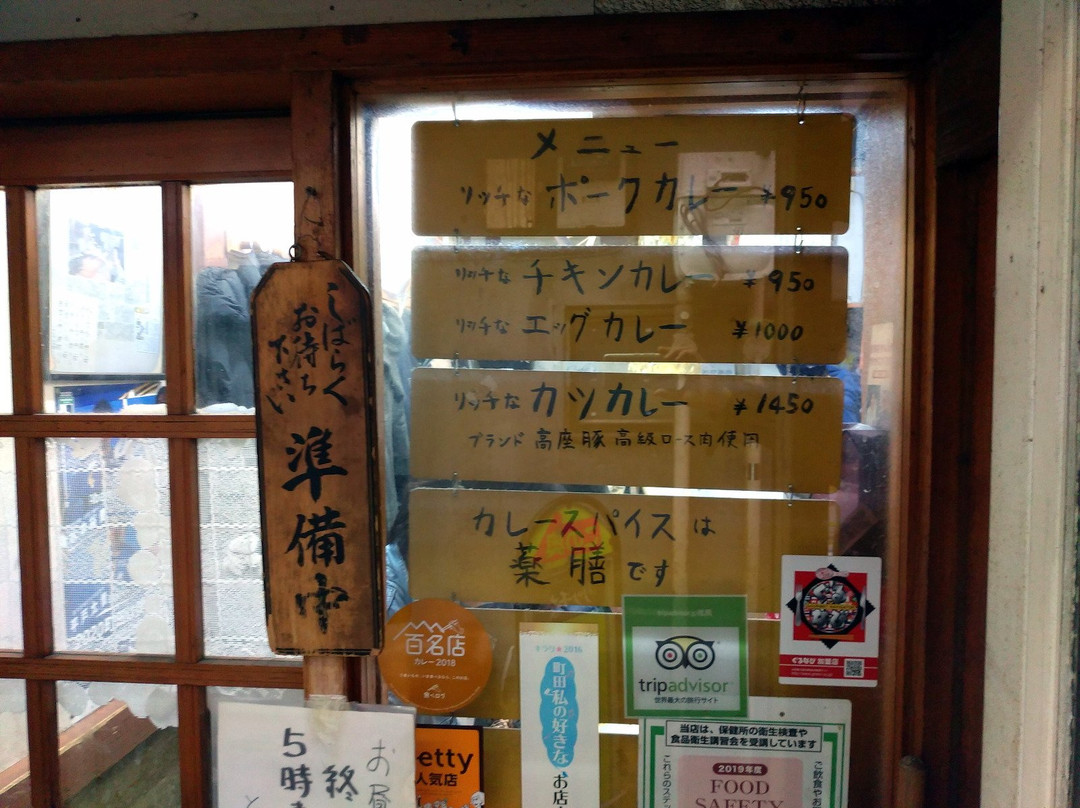 メニュー
リッチな ポークカレー ¥950
リッチな チキンカレー ¥950
リッチな エッグカレー ¥1000
リッチな カツカレー ¥1450
ブランド 高座豚 高級ロース肉使用
カレースパイスは
薬膳です
しばらく
お待ち
下さい
準備中
百名店
カレー2018
食べログ
町田 私の好きな
お店
tripadvisor
世界最大の旅行サイト
ぐるなび 加盟店
当店は、保健所の衛生検査や
食品衛生講習会を受講しています
2019年度
FOOD
SAFETY
etty
人気店
お昼
終
5時